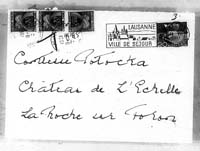 3
LAUSANNE
VILLE DE SEJOUR
Comtesse Potocka
Château de L'Echelle
La Roche sur Foron